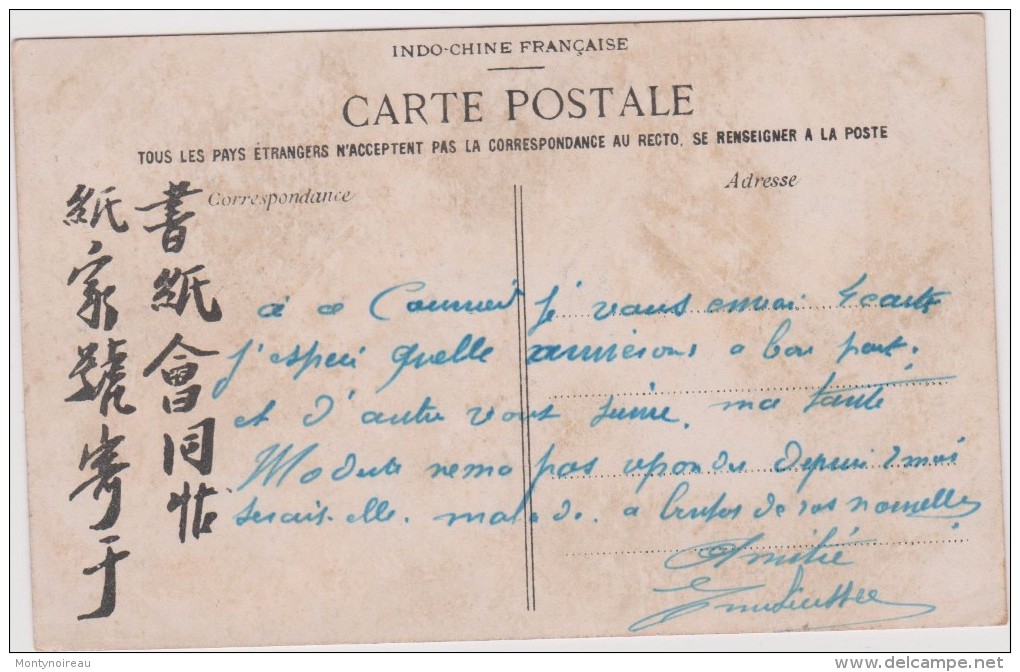 INDO-CHINE FRANÇAISE
CARTE POSTALE
TOUS LES PAYS ÉTRANGERS N'ACCEPTENT PAS LA CORRESPONDANCE AU RECTO, SE RENSEIGNER A LA POSTE
Correspondance
Adresse
書紙會同帖
紙家號寄于
a ce Courrier je vous envoi 4 carte
j'esperé quelle arrierons a bon port.
et d'autre vont suivre. ma tante
nema pas repondu depuis 2 mois
serais-elle. malade. a bientot de vos nouvelles
Amitié
Montynoireau
www.delcampe.net